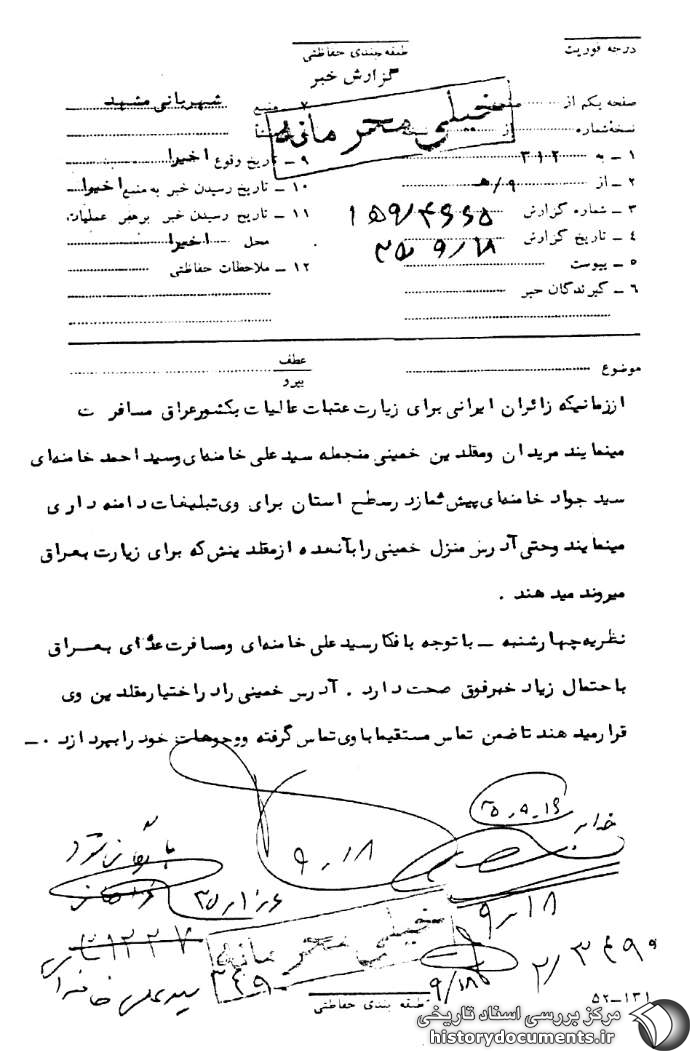 درجه فوریت
طبقه بندی حفاظتی
گزارش خبر
خیلی محرمانه
صفحه یکم از صفحه
نسخه شماره از
۱ ــ به ۳۱۲
۲ ــ از ۹/هـ
۳ ــ شماره گزارش
۴ ــ تاریخ گزارش ۳۵/۹/۱۸
۵ ــ پیوست
۶ ــ گیرندگان خبر
۷ منبع شهربانی مشهد
۹ ــ تاریخ وقوع اخیرا
۱۰ ــ تاریخ رسیدن خبر به منبع اخیرا
۱۱ ــ تاریخ رسیدن خبر برهبر عملیات
محل اخیرا
۱۲ ــ ملاحظات حفاظتی
موضوع
عطف
پیرو
اززمانیکه زائران ایرانی برای زیارت عتبات عالیات بکشورعراق مسافرت
مینمایند مریدان ومقلدین خمینی منجمله سید علی خامنه‌ای وسید احمد خامنه‌ای
سید جواد خامنه‌ای پیشنماز درسطح استان برای وی تبلیغات دامنه داری
مینمایند وحتی آدرس منزل خمینی رابآنعده ازمقلدینش که برای زیارت بعراق
میروند مید هند .
نظریه چهارشنبه ــ با توجه بافکارسید علی خامنه‌ای ومسافرت عده‌ای بعراق
باحتمال زیاد خبرفوق صحت دارد . آدرس خمینی رادراختیارمقلدین وی
قرارمید هند تاضمن تماس مستقیما باوی تماس گرفته ووجوهات خود رابپردازد .ــ
۳۵-۹-۱۶
۹-۱۸
۹-۱۸
خیلی محرمانه
۳۴۹
۹/۱۸
سید علی خامنه‌ای
طبقه بندی حفاظتی
۵۲ــ۱۳۱
مرکز بررسی اسناد تاریخی
historydocuments.ir